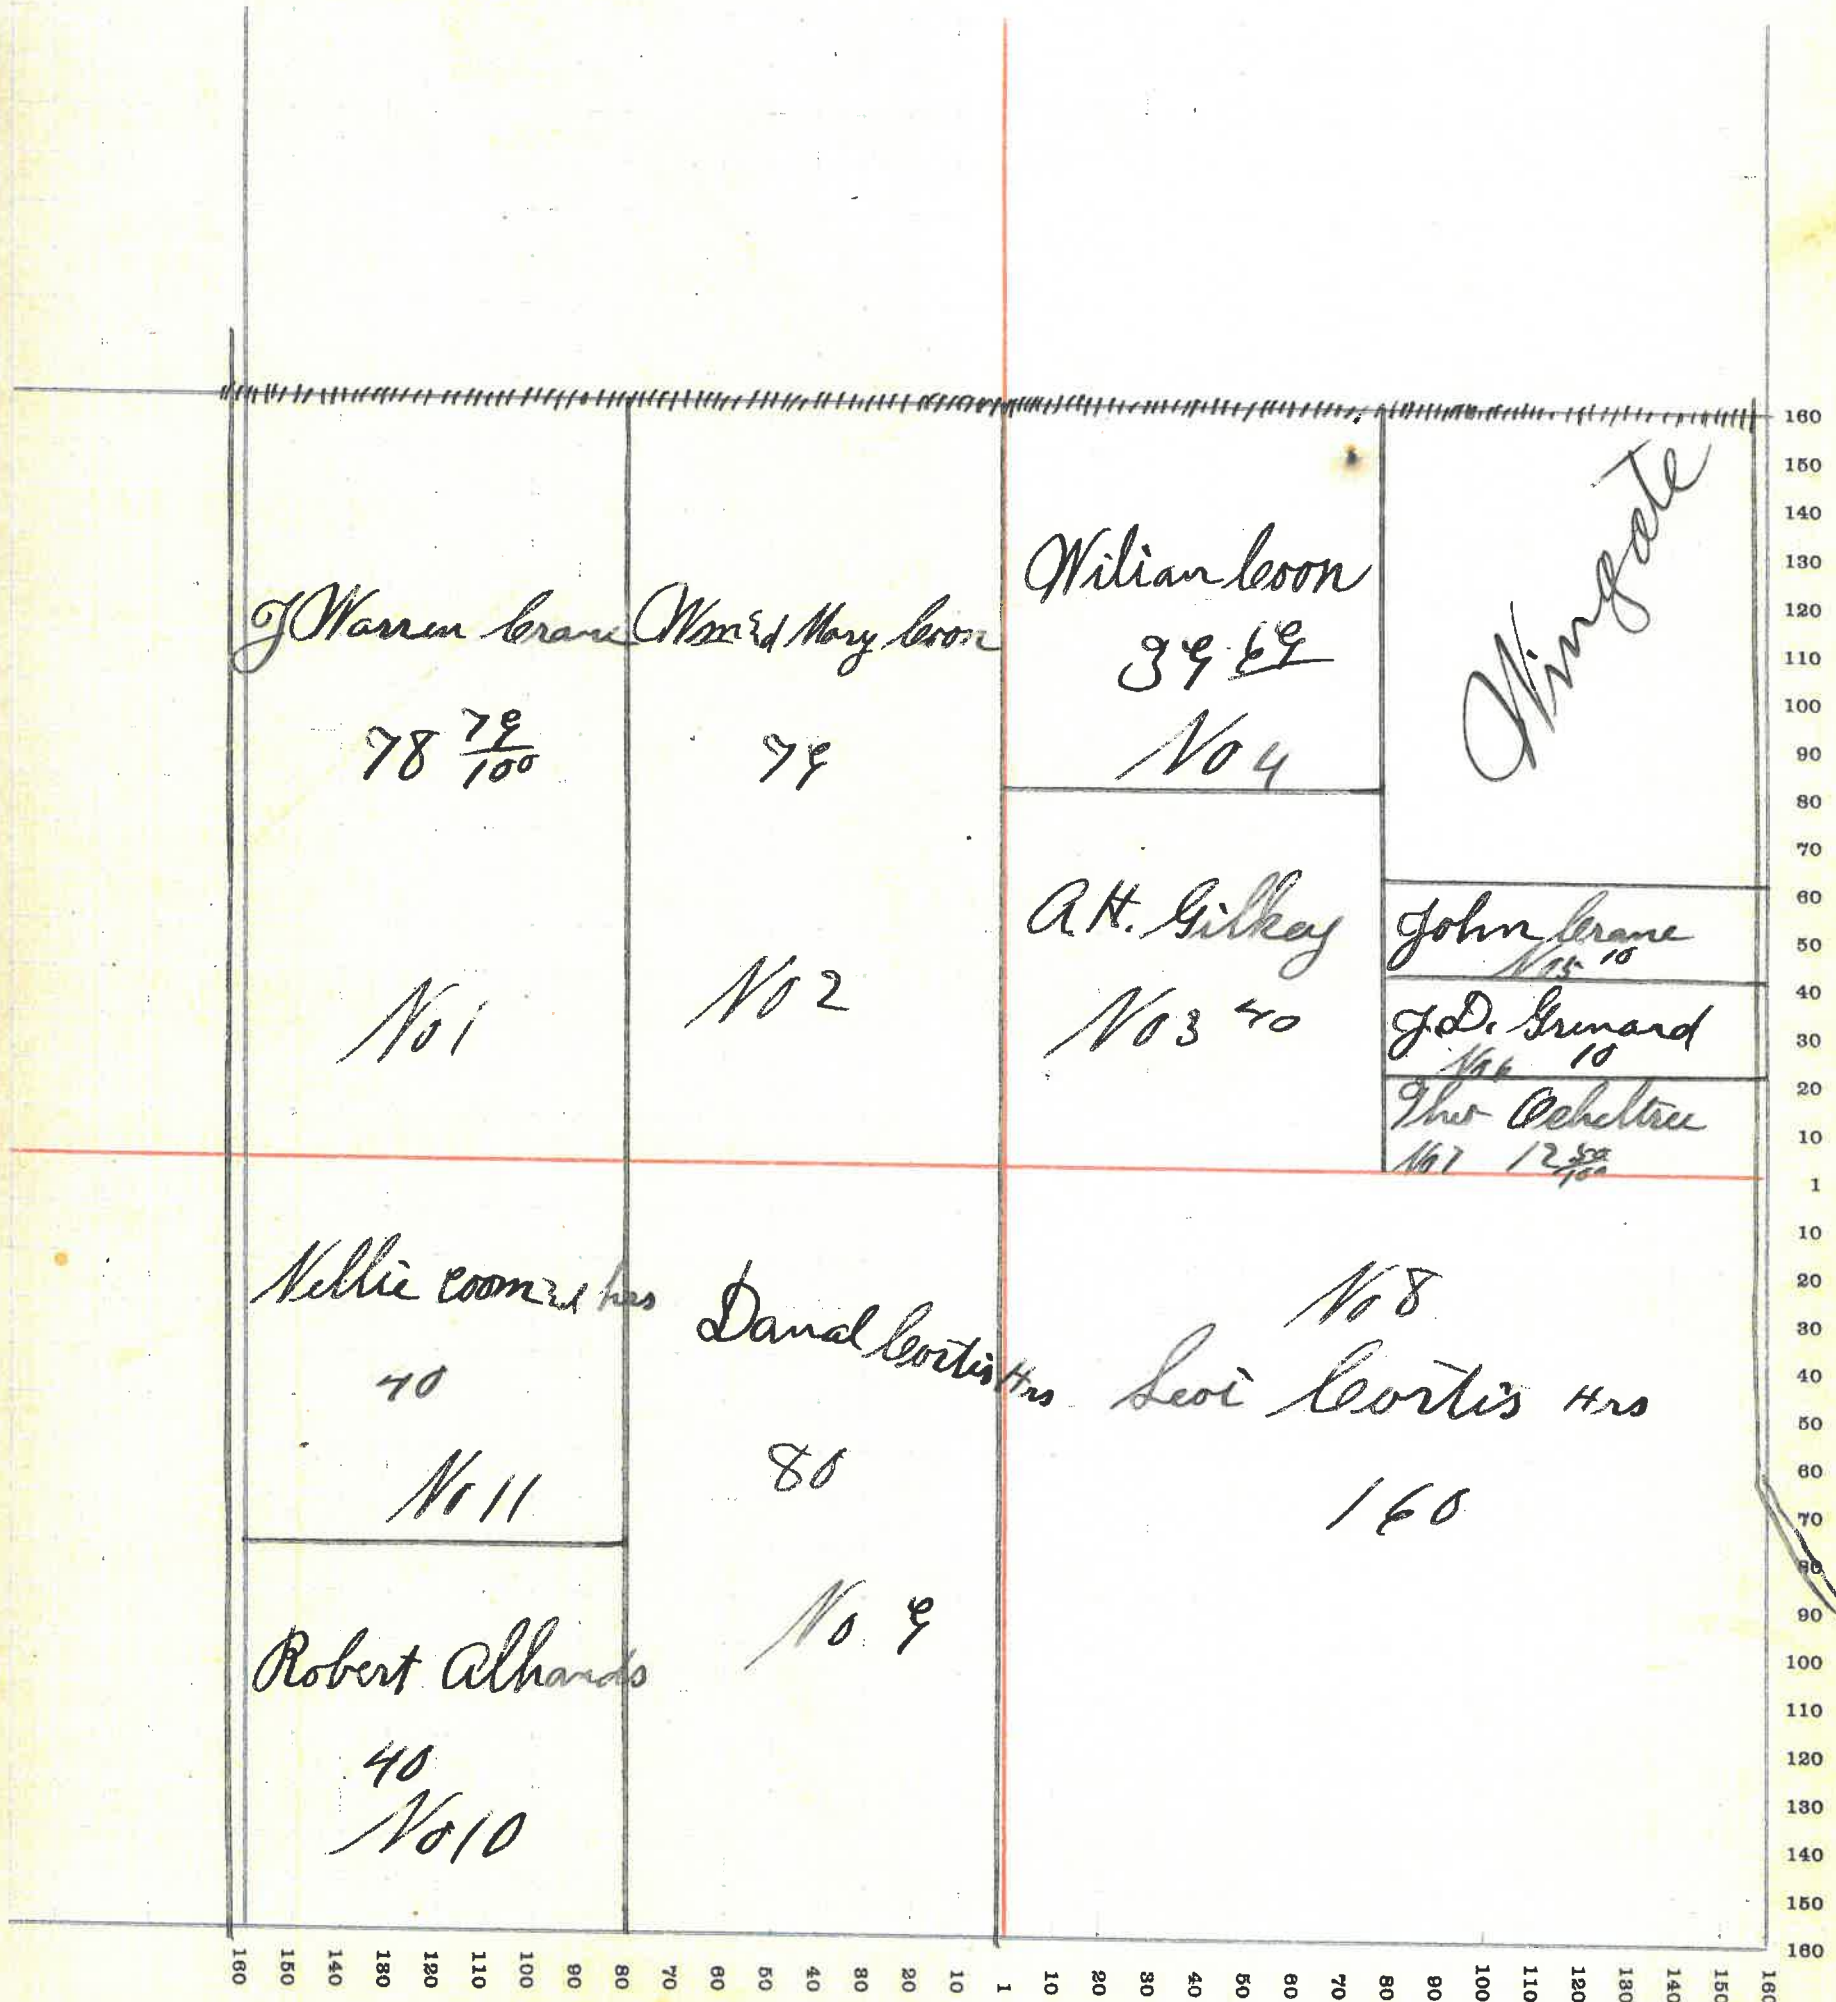 J Warren Crane
78 79/100
No 1
Wm & Mary Coon
79
No 2
Wilian Coon
39 69
No 4
Wingate
A.H. Gilkey
No 3 40
John Crane
No 5 10
J.D. Grenard
No 6 10
Theo Ocheltree
No 7 12 50/100
Nellie Coon hrs
40
No 11
Danal Cortis Hrs
80
No. 9
No 8
Levi Cortis Hrs
160
Robert Alhands
40
No 10
160
150
140
130
120
110
100
90
80
70
60
50
40
30
20
10
1
10
20
30
40
50
60
70
80
90
100
110
120
130
140
150
160
160 150 140 130 120 110 100 90 80 70 60 50 40 30 20 10 1 10 20 30 40 50 60 70 80 90 100 110 120 130 140 150 160